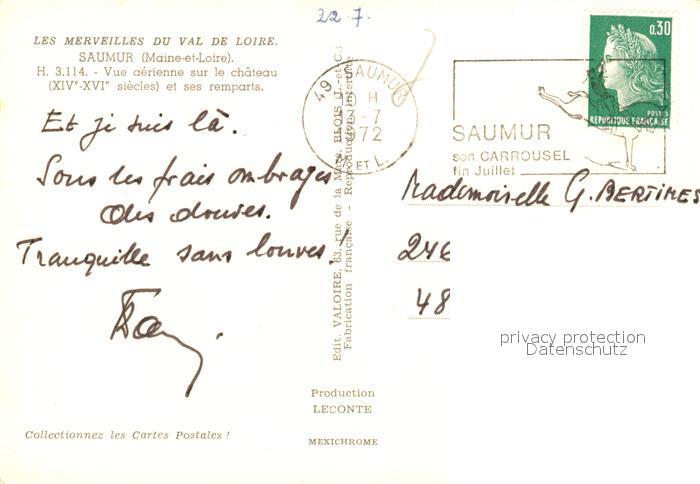 22 7.
LES MERVEILLES DU VAL DE LOIRE.
SAUMUR (Maine-et-Loire).
H. 3.114. - Vue aérienne sur le château
(XIVe-XVIe siècles) et ses remparts.
Et j'y suis là.
Sous les frais ombrages
des douves.
Tranquille sans louves!
Collectionnez les Cartes Postales !
Edit. VALOIRE, 63, rue de la Mare, BLOIS (L.-et-C.)
Fabrication française - Reproduction interdite
Production
LECONTE
MEXICHROME
49 SAUMUR
H
3-7
1972
M. ET L.
SAUMUR
son CARROUSEL
fin Juillet
0,30
POSTES
REPUBLIQUE FRANÇAISE
Mademoiselle G. BERTINES
246
48
privacy protection
Datenschutz